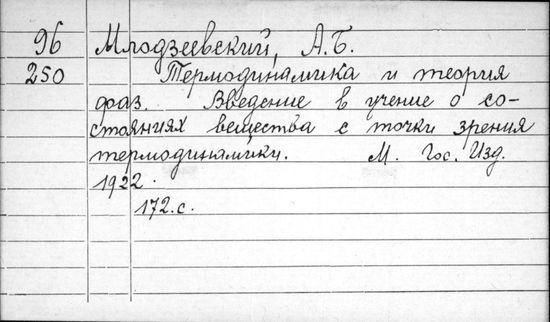 96 Млодзеевский, А.Б.
250 Термодинамика и теория
фаз. Введение в учение о со-
стояниях вещества с точки зрения
термодинамики. М. Гос. Изд.
1922.
172.с.